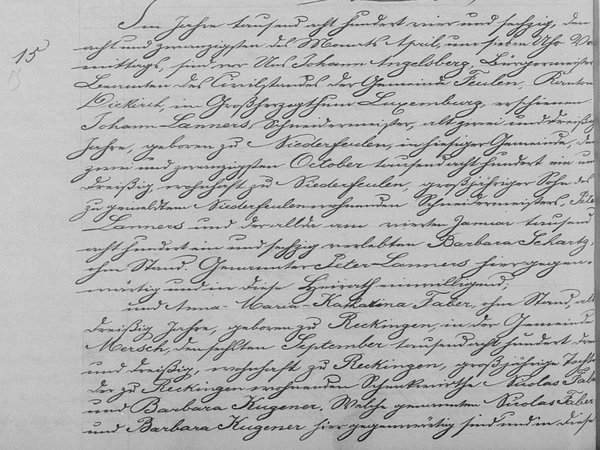 15
Im Jahre tausend acht hundert vier und sechzig, den
acht und zwanzigsten des Monats April, um sieben Uhr Vor-
mittags, sind vor Uns Johann Angelsberg, Bürgermeister
Beamten des Civilstandes der Gemeinde Feulen, Kanton
Diekirch, im Großherzogthum Luxemburg, erschienen
Johann Lanners, Schneidermeister, alt zwei und dreißig
Jahre, geboren zu Niederfeulen, in hiesiger Gemeinde, den
zwei und zwanzigsten October tausend acht hundert ein und
dreißig wohnhaft zu Niederfeulen, großjähriger Sohn des
zu gemeldten Niederfeulen wohnenden Schneidermeisters, Peter
Lanners und der allda am vierten Januar tausend
acht hundert ein und sechzig verlebten Barbara Schartz,
ohne Stand. Genannter Peter Lanners hier gegen-
wärtig und in diese Heirath einwilligend;
und Anna-Maria-Katharina Faber, ohne Stand, alt
dreißig Jahre, geboren zu Reckingen, in der Gemeinde
Mersch, den September tausend acht hundert drei
und dreißig, wohnhaft zu Reckingen, großjährige Tochter
der zu Reckingen wohnenden Schenkwirthe Nicolas Faber
und Barbara Kugener. Welche genannten Nicolas Faber
und Barbara Kugener hier gegenwärtig sind und in diese